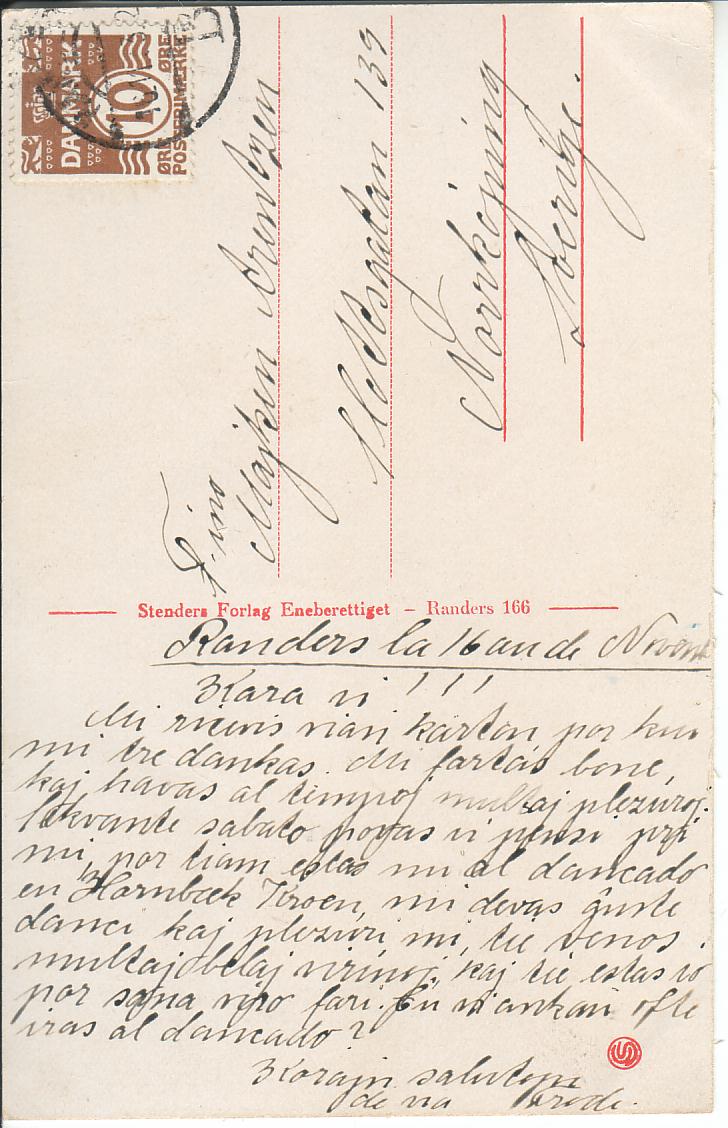 DANMARK
10
ØRE
ØRE
POSTFRIMÆRKE
F-ino
Majken Arentzen
Slottsgatan 139
Norrköping
Sverige.
Stenders Forlag Eneberettiget – Randers 166
Randers la 16 an de
Kara vi!!!
Mi ricevis vian karton por kiu
mi tre dankas. Mi fartas bone,
kaj havas al tempoj multaj plezuroj.
sabato povas vi pensi pri
mi, por tiam estas mi al dancado
en Hornbæk Kroen, mi devas ĝuste
danci kaj plezuri mi, tie venos
multaj belaj virinoj, kaj tie estas io
por sana viro fari. Ĉu vi ankaŭ ofte
iras al dancado?
Korajn salutojn
de via